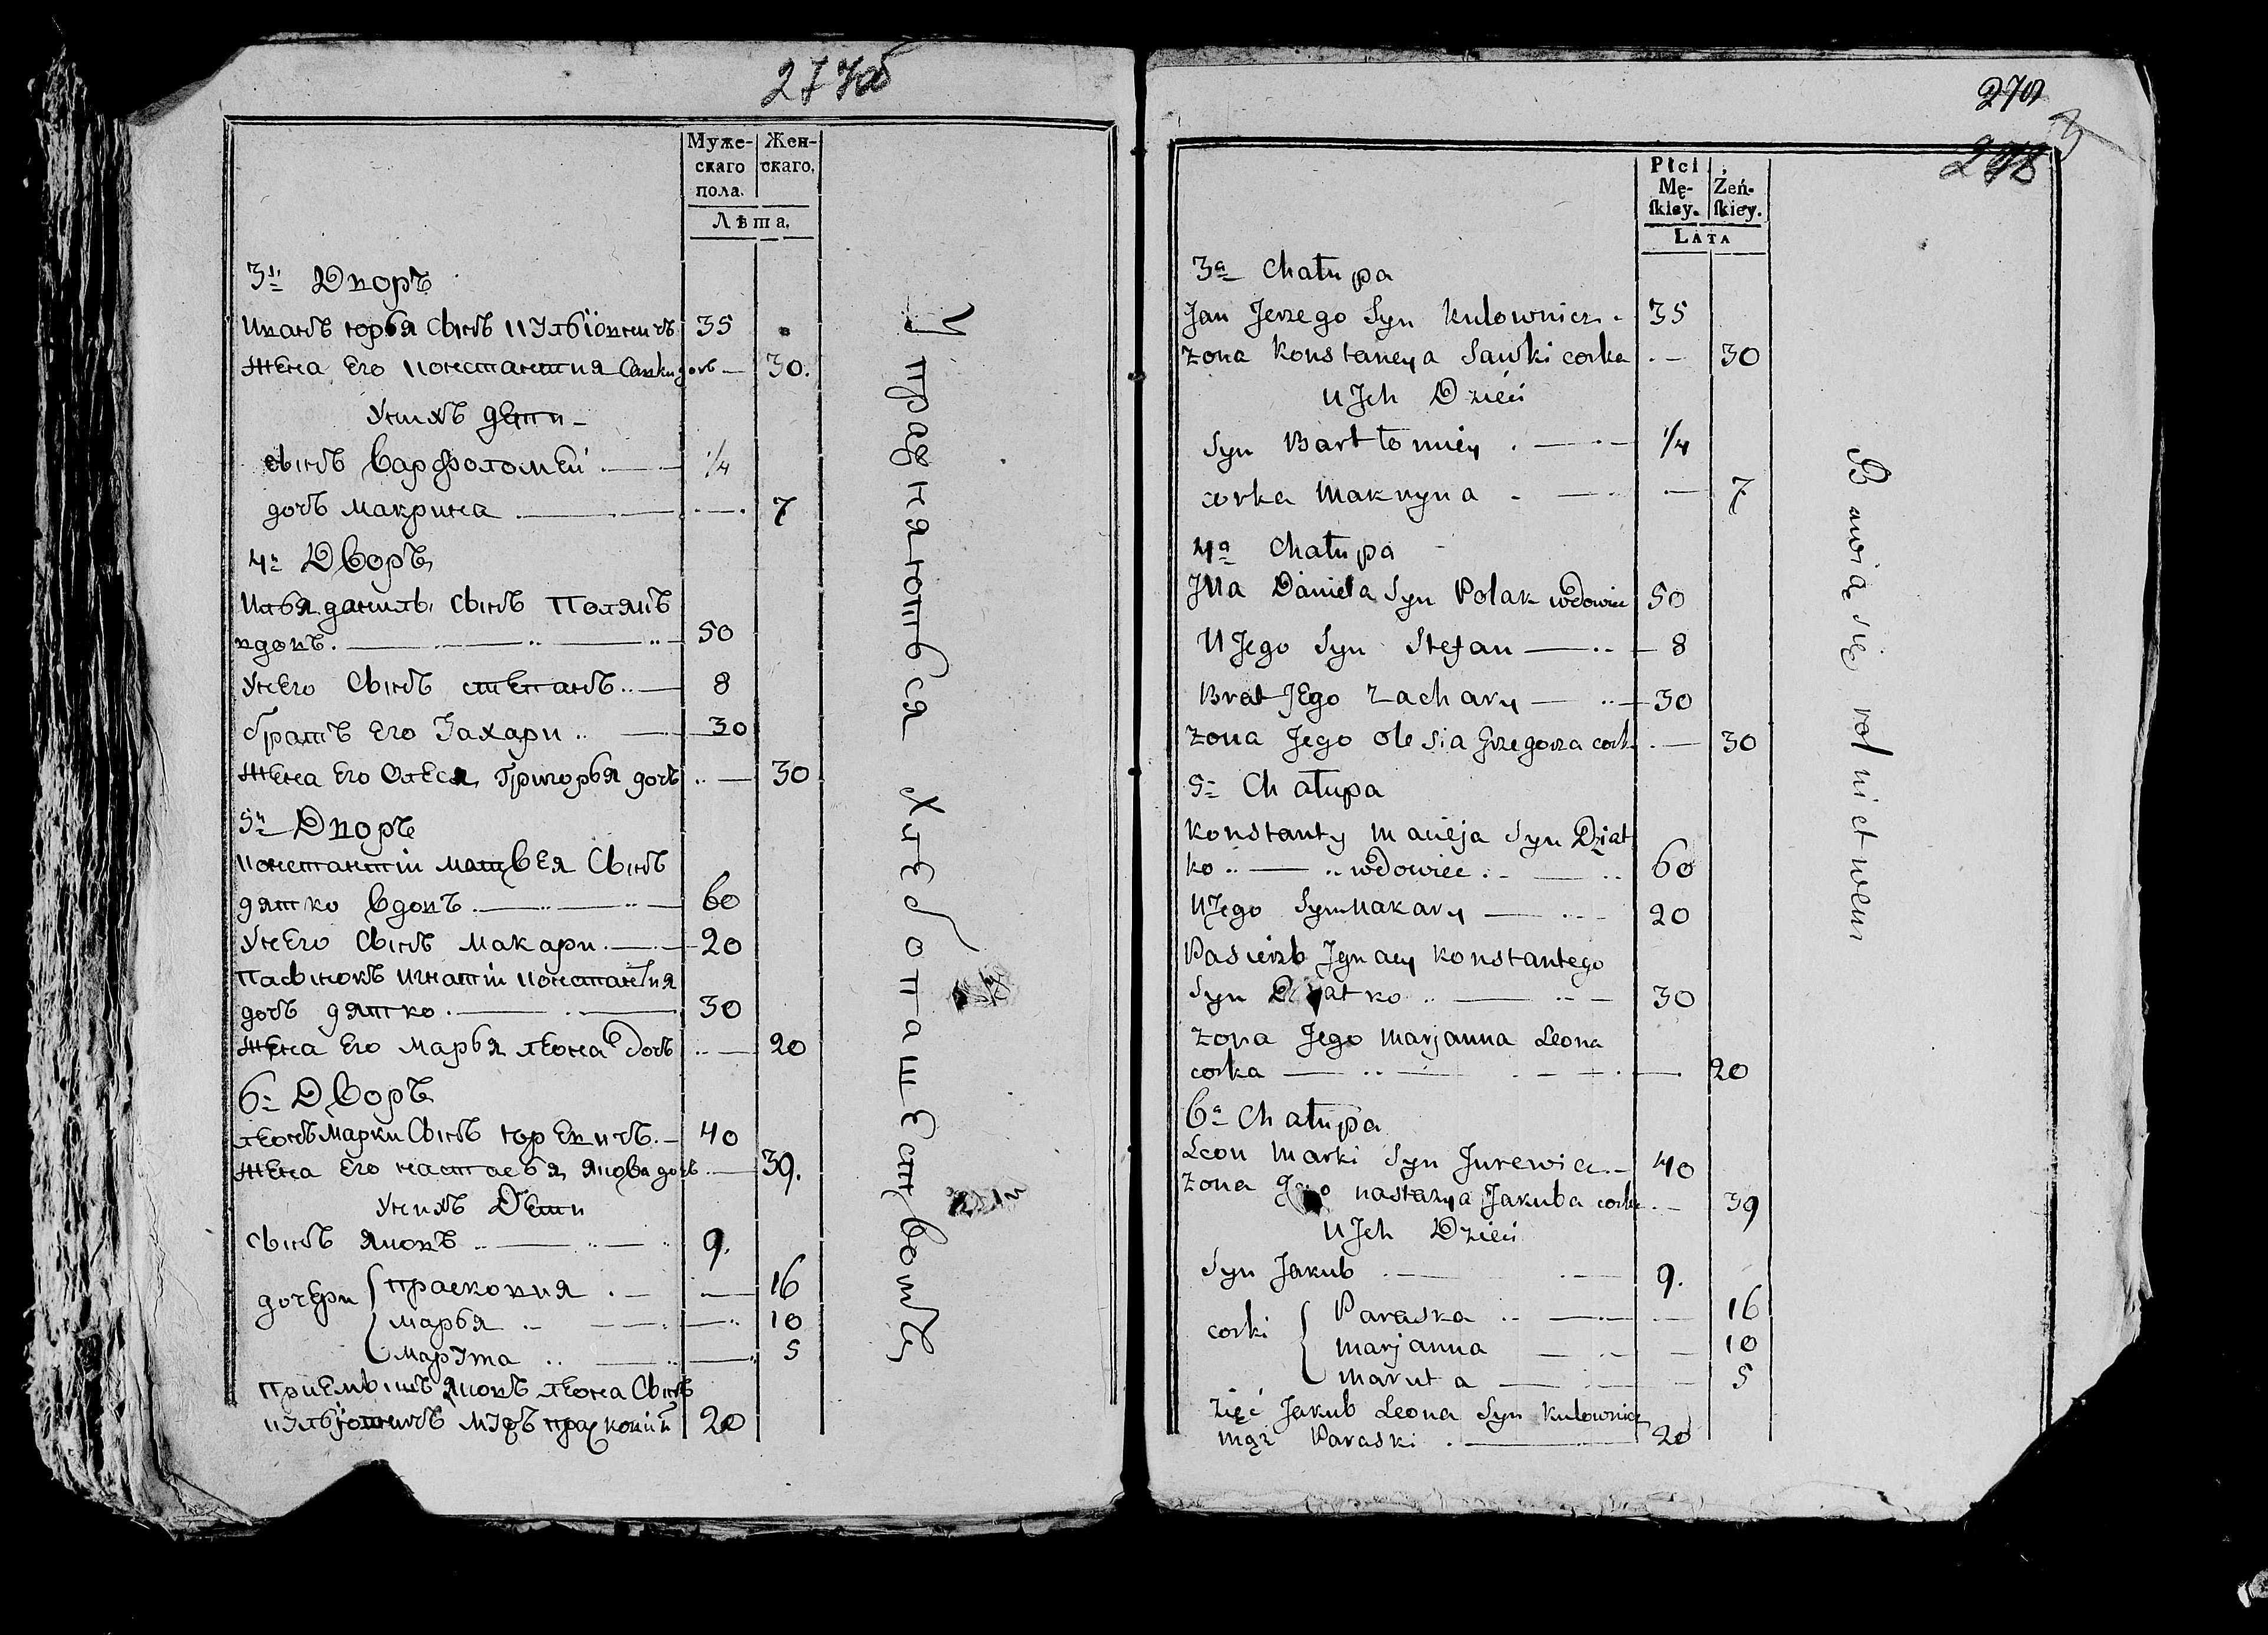 277об
Муже- Жен-
скаго скаго.
пола.
Лѣта.
3й Дворъ
Иванъ Юрья Сынъ 35
Жена Его Константия Савки дочь — 30.
Унихъ дети —
сынъ Варфоломей — 1/4
дочь Макрина — 7
4й Дворъ
Илья данилы Сынъ Полякъ
вдовъ. — 50
Унего Сынъ степанъ — 8
братъ Его Захари — 30
Жена Его Олеся Григорья дочь — 30
5й Дворъ
Константiи матвея Сынъ
дятко вдовъ — 60
Унего Сынъ Макари — 20
Пасынокъ игнатiи Константия
дочь дятко — 30
Жена Его Марья леона дочь — 20
6й Дворъ
леонъ Марки Сынъ Юревичъ — 40
Жена Его настасья якова дочь — 39.
Унихъ Дети
Сынъ яковъ — 9.
дочери { прасковия — 16
Марья — 10
Марута — 5
приемышъ яковъ леона Сынъ
мужъ прасковiи 20
Упражняються хлебопашествомъ
270
278
Płci
Mę- Żeń-
skiey. skiey.
LATA
3a Chałupa
Jan Jerzego Syn Kulownicz 35
Zona Konstancya Sawki corka — 30
U Jch Dzieci
Syn Bartłomiey — 1/4
corka Maknyna — 7
4a Chałupa
Jlia Daniela Syn Polak wdowiec 50
U Jego Syn Stefan — 8
Brat JEgo Zachary — 30
Zona Jego Olesia Grzegorza cork — 30
5a Chałupa
Konstanty Macieja Syn Dziat
ko — wdowiec — 60
U Jego Syn Makary — 20
Pasierzb Jgnacy Konstantego
Syn Dziatko — 30
Zona Jego Marjanna Leona
corka — 20
6a Chałupa
Leon Marki Syn Jurewicz — 40
Zona Jego nastazya Jakuba corka — 39
U Jch Dzieci
Syn Jakub — 9.
corki { Paraska — 16
Marjanna — 10
Maruta — 5
Zięć Jakub Leona Syn Kulownicz
mąż Paraski — 20
Bawią się rolnictwem